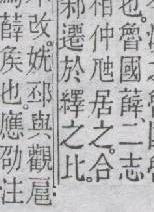 也。魯國薛、二志
相仲虺居之。合
邾遷於繹之比。
改。姺邳與觀扈
薛矦也。應劭注